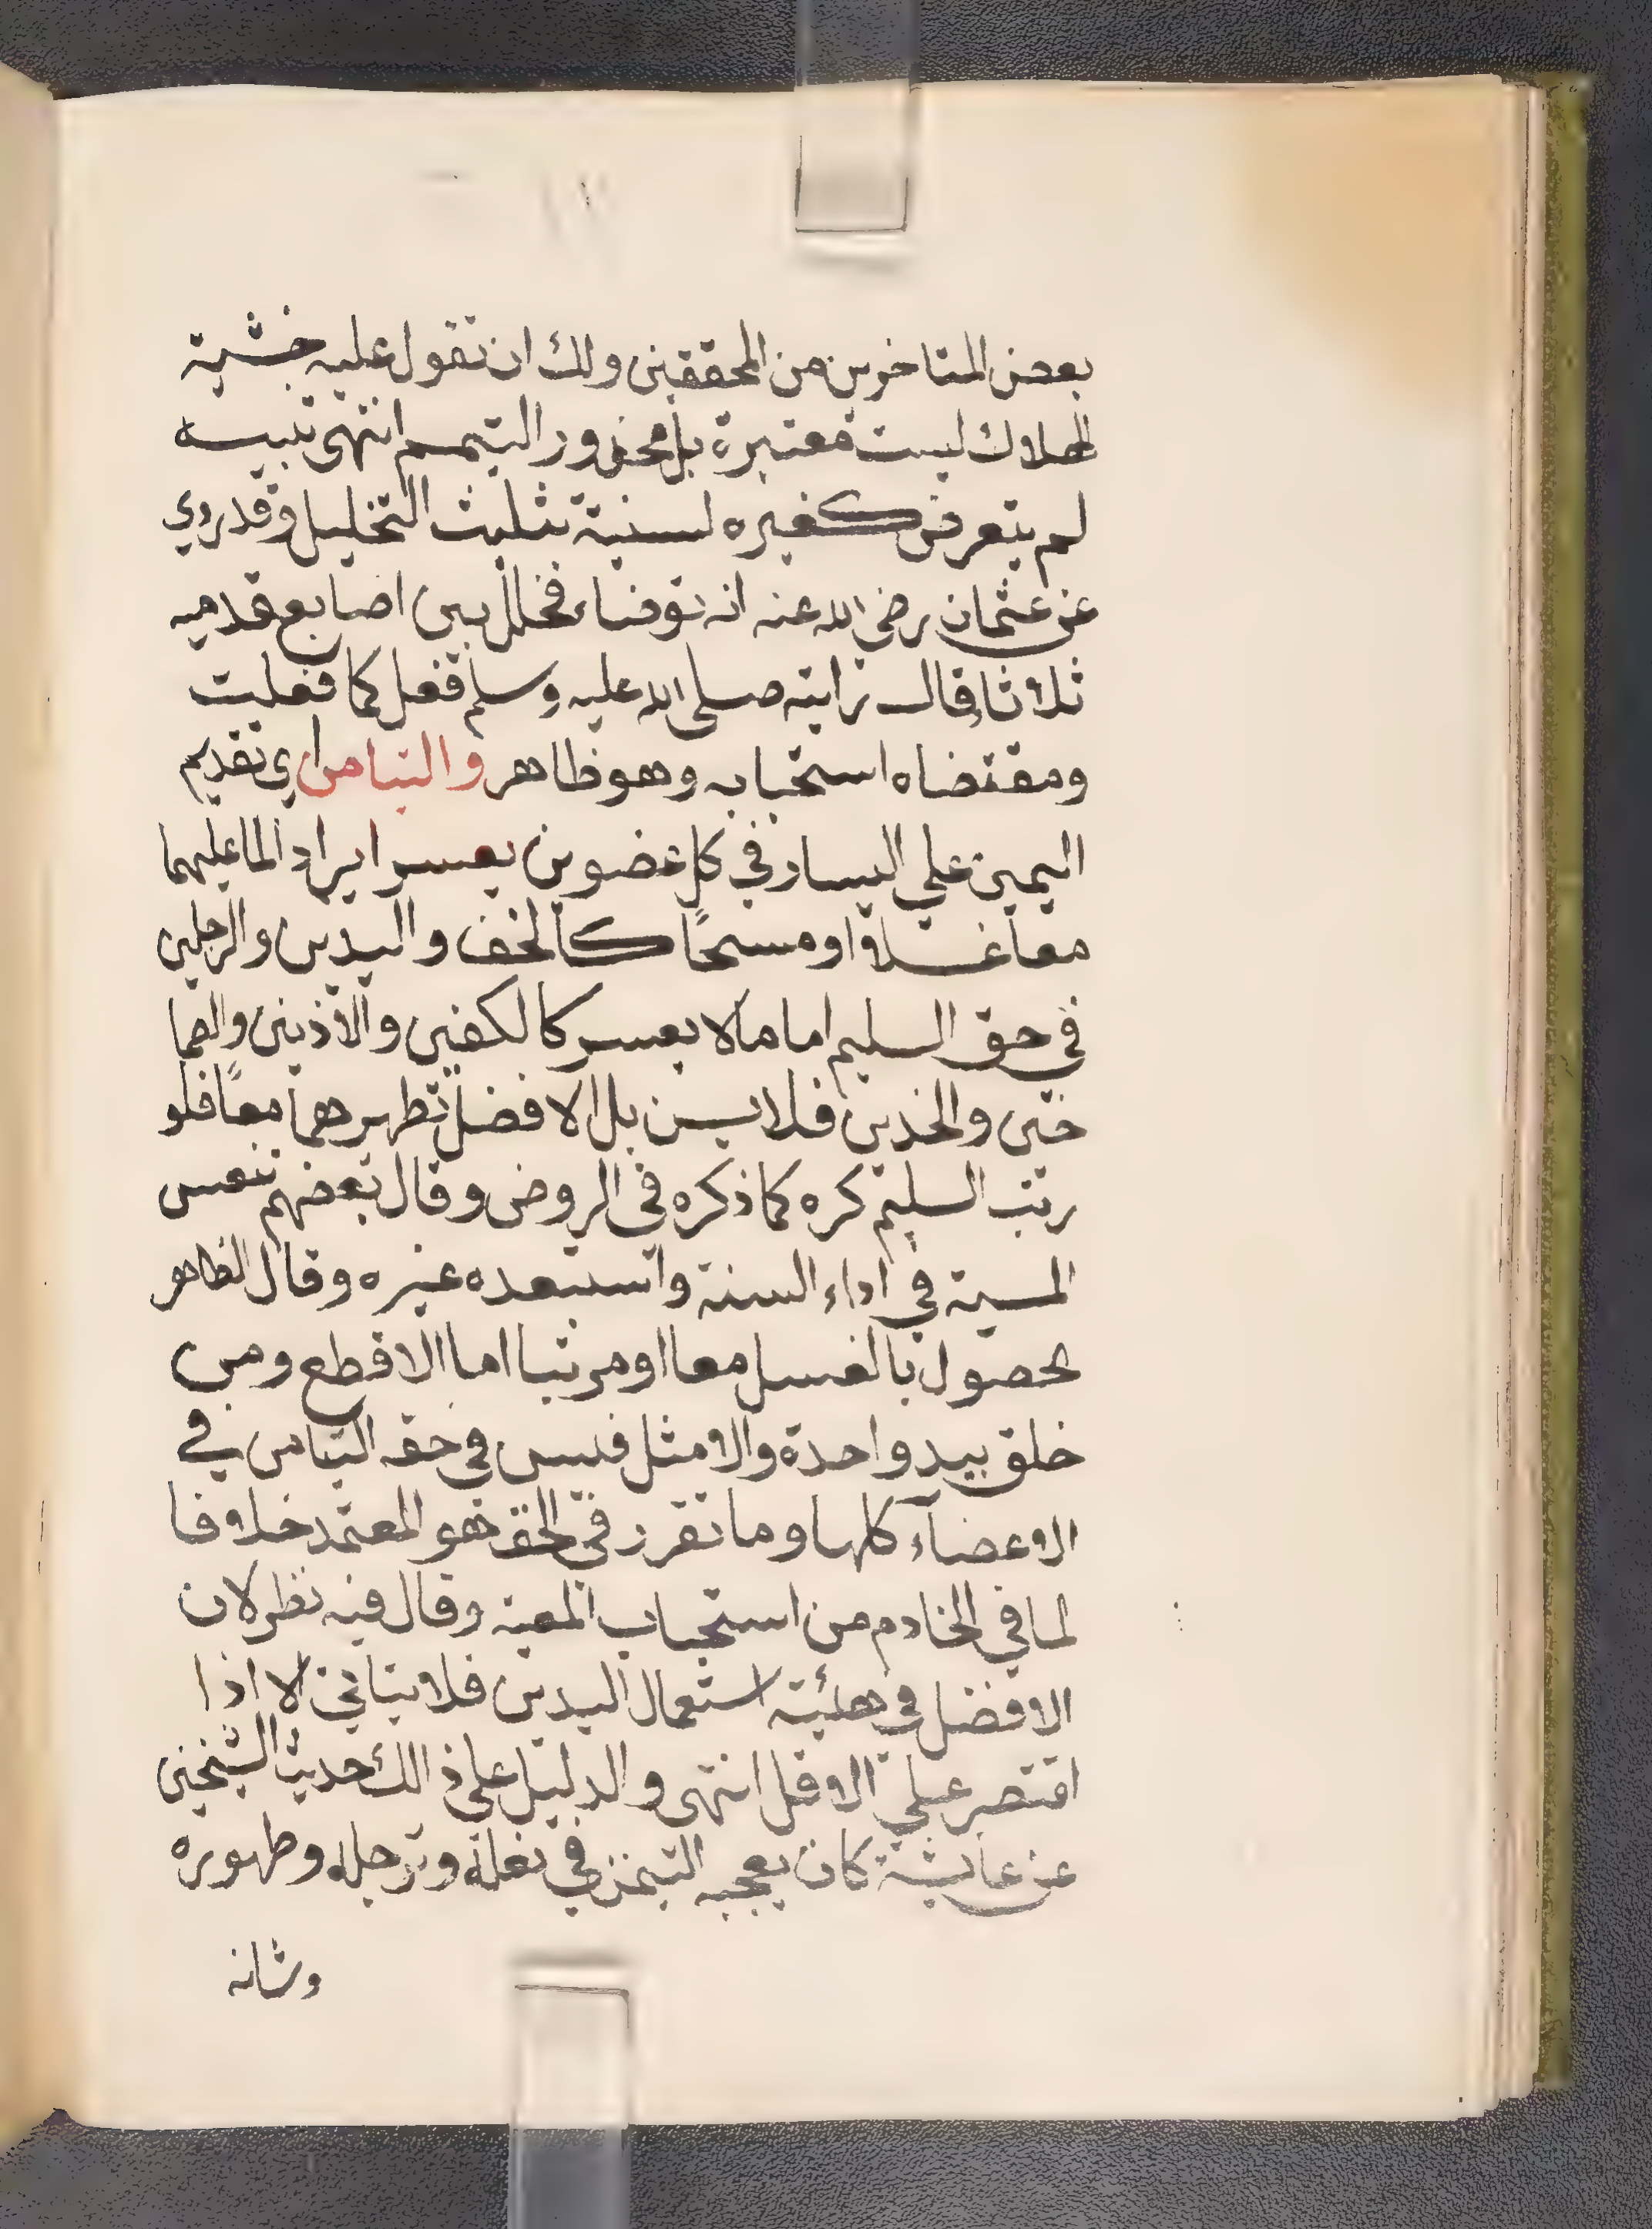 بعض المتاخرين من المحققين ولك ان تقول عليه خشية
الهلاك ليست معتبرة بل محذور التيمم انتهى تنبيه
لم يتعرض كغيره لسنية تثليث التخليل وقد روي
عن عثمان رضي الله عنه انه توضاء فخلل بين اصابع قدميه
ثلاثا وقال رايته صلى الله عليه وسلم فعل كما فعلت
ومقتضاه استحبابه وهو ظاهر والتيامن اي تقديم
اليمين علي اليسار في كل عضوين يعسر ايراد الما عليهما
معا غسلا او مسحًا كالخف واليدين والرجلين
في حق السليم اما ما لا يعسر كالكفين والاذنين والصما
خين والخدين فلا يسن بل الافضل تطهيرهما معًا فلو
رتب السليم كره كما ذكره في الروض وقال بعضهم
المسية في اداء السنة واستبعده غيره وقال الظاهر
بحصول بالغسل معا او مرتبا اما الاقطع ومن
خلق بيد واحدة والامثل فيسن في حقه التيامن في
الاعضآء كلها وما تقرر في الخف هو المعتمد خلافا
لما في الخادم من استحباب المعية وقال فيه نظر لان
الافضل في هئية استعمال اليدين فلا يتاتي الا اذا
اقتصر علي الاقل انتهى والدليل على ذالك حديث الشيخين
عن عايشة كان يعجبه التيمن في نعله وترجله وطهوره
وشانه